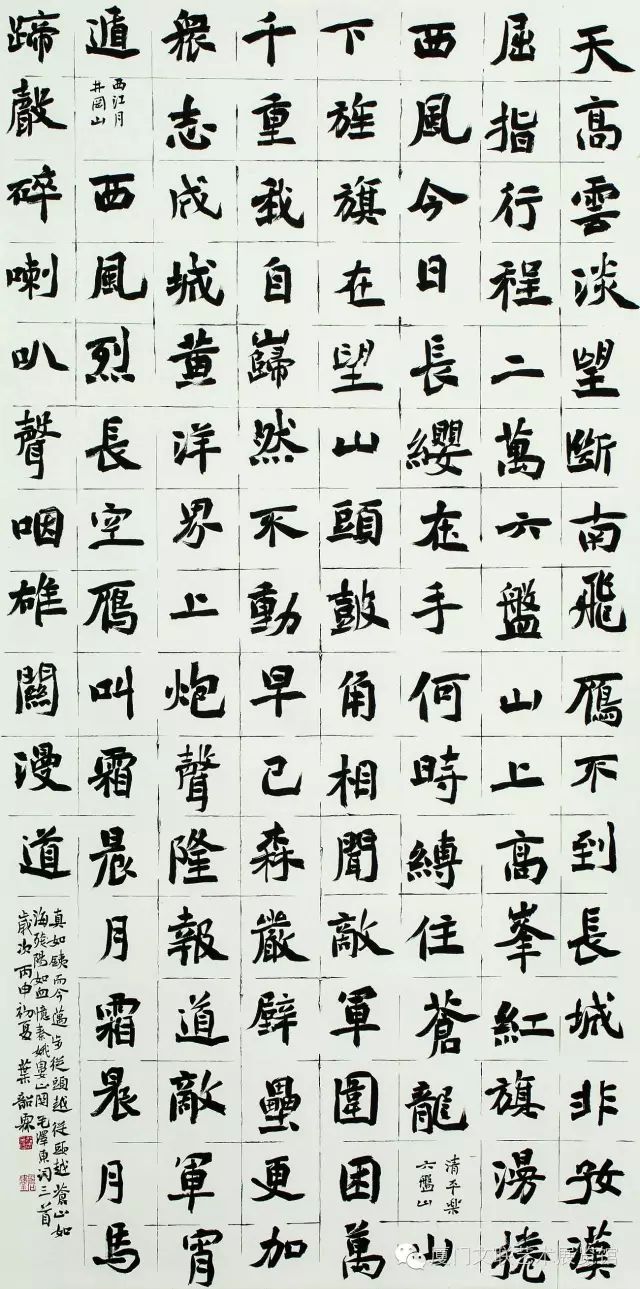 天高雲淡望斷南飛鴈不到長城非好漢
屈指行程二萬六盤山上高峯紅旗漫捲
西風今日長纓在手何時縛住蒼龍
清平樂
六盤山
山
下旌旗在望山頭鼓角相聞敵軍圍困萬
千重我自巋然不動早已森嚴壁壘更加
衆志成城黄洋界上炮聲隆報道敵軍宵
遁
西江月
井岡山
西風烈長空鴈叫霜晨月霜晨月馬
蹄聲碎喇叭聲咽雄關漫道
真如鐵而今邁步從頭越從頭越蒼山如
海殘陽如血憶秦娥婁山関毛澤東词三首
歲次丙申初夏 葉韶霖
厦门文联艺术展览馆